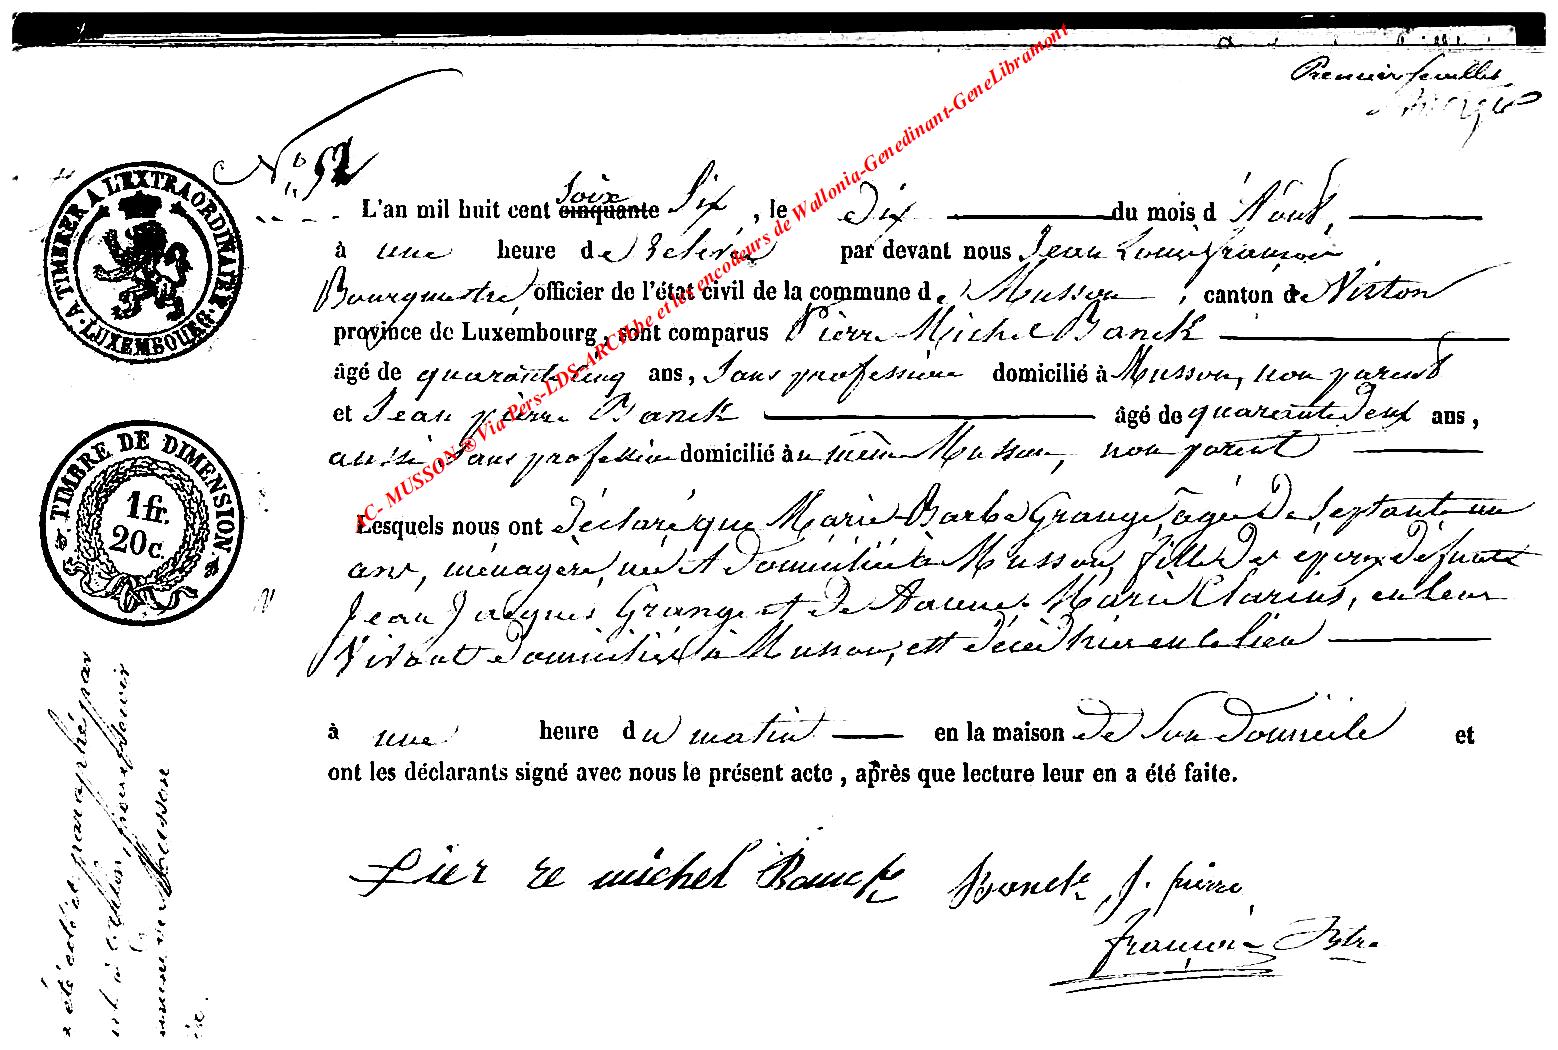 Premier feuillet
N° 52
A TIMBRER A L'EXTRAORDINAIRE
LUXEMBOURG
L'an mil huit cent cinquante Soixte Six, le Dix du mois d'Aout,
à une heure de relevée par devant nous Jean Louis François
Bourgmestre officier de l'état civil de la commune de Musson, canton de Virton
province de Luxembourg, sont comparus Pierre Michel Banck
âgé de quarante cinq ans, Sans profession domicilié à Musson, non parent
et Jean pierre Banck âgé de quarante deux ans,
aussi Sans profession domicilié à même Musson, non parent
TIMBRE DE DIMENSION
1 fr.
20 c.
Lesquels nous ont déclaré que Marie Barbe Grange, agée de Septante un
ans, ménagère, née et domiciliée à Musson, fille des époux défunts
Jean Jacques Grange et de Marie Clarins, en leur
Vivant domiciliés à Musson, est décédée hier en ce lieu
à une heure du matin en la maison de Son domicile et
ont les déclarants signé avec nous le présent acte, après que lecture leur en a été faite.
Pier re michel Banck Banck J. pierre
François
été coté et paraphé par
AC- MUSSON ® Via Pers-LDS-ARCH.be et les encodeurs de Wallonia-Genedinant-GeneLibramont